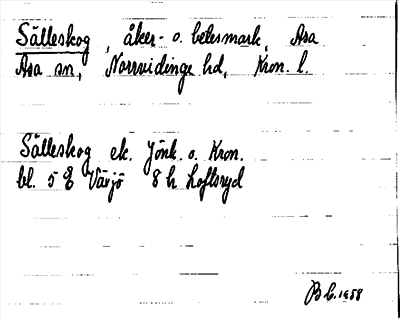 Sälleskog, åker- o. betesmark, Asa
Asa sn, Norrvidinge hd, Kron. l.
Sälleskog ek. Jönk. o. Kron.
bl. 5 E Växjö 8 h Loftsryd
1958